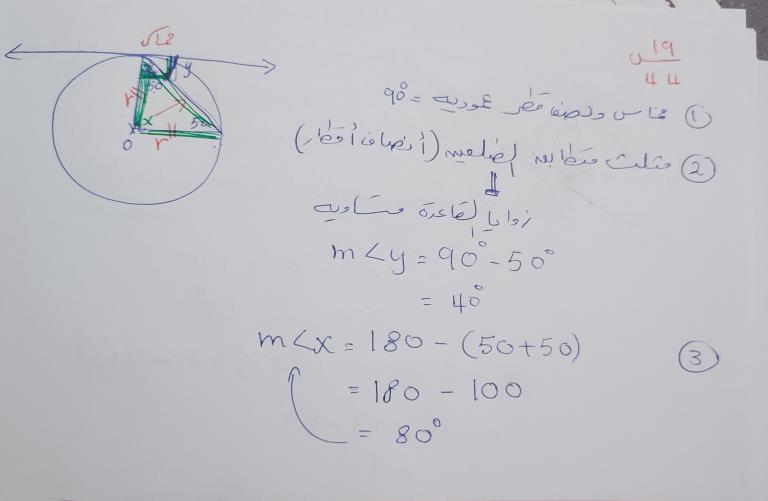 س 19
44
مماس
O
x
y
r
r
50
50
① مماس ونصف قطر عموديه = 90°
② مثلث متطابق الضلعين (أنصاف أقطار)
زوايا القاعدة متساويه
m<y = 90° - 50°
= 40°
③ m<x = 180 - (50+50)
= 180 - 100
= 80°